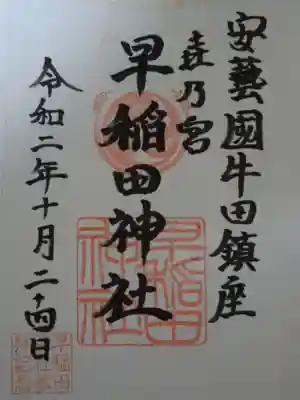 安藝國牛田鎮座
㐂乃宮
早稲田神社
令和二年十月二十四日
早稲田神社